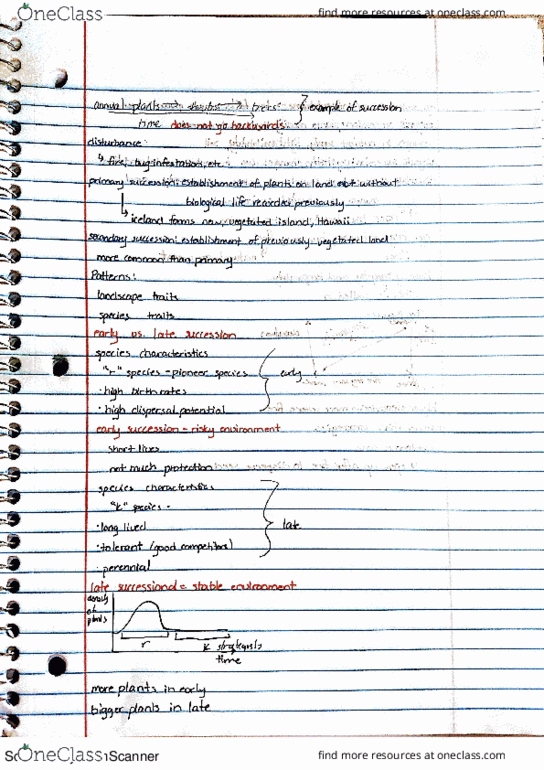 OneClass
find more resources at oneclass.com
annual plants → shrubs → trees } example of succession
time does not go backwards
disturbance:
↳ fire, bug infestations, etc.
primary succession: establishment of plants on land without
biological life recorded previously
↳ iceland forms new, vegetated island, Hawaii
secondary succession: establishment of previously vegetated land
more common than primary
Patterns:
landscape traits
species traits
early vs. late succession
species characteristics
"r" species = pioneer species
early
· high birth rates
· high dispersal potential
early succession = risky environment
short lives
not much protection
species characteristics
"K" species -
· long lived
late
· tolerant (good competitors)
· perennial
late successional = stable environment
density
of
plants
r
K strategists
time
more plants in early
bigger plants in late
OneClass
Scanner
find more resources at oneclass.com